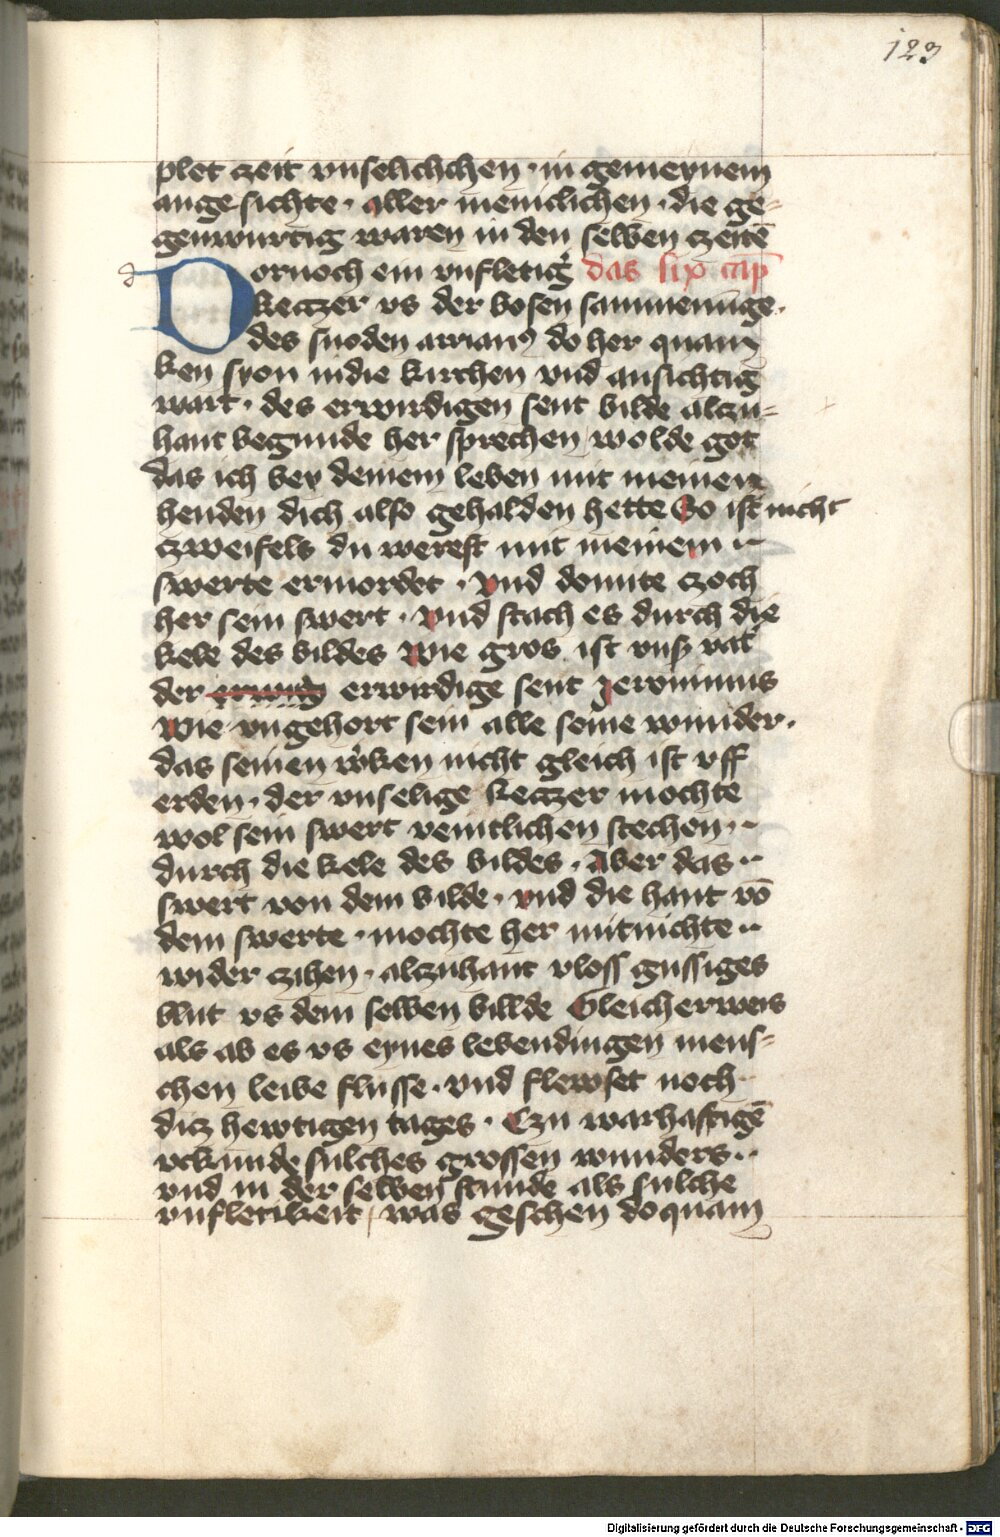 123
plet zeit vnselichchen · in gemeynem
angesichte · aller meniclichen · die ge-
genwurtig waren in den selben czeitē
Dornoch ein vnfletig' das lix cap̄
keczer vs der bosen sammenu͂ge ·
des snoden arrian9 do her quam
ken syon in die kirchen vnd ansichtig
wart · des erwirdigen sent bilde alczu-
hant begunde her sprechen wolde got
das ich bey deinem leben mit meinen
henden dich also gehalden hette So ist nicht
czweifels du werest mit meinem ··
swerte ermordet · vnd domite czoch
her sein swert · vnd stach es durch die
kele des bildes Wie gros ist vnß vat'
der erwirdige sent Jeronimus
Wie vngehort sein alle seine wunder ·
das seinen w'ken nicht gleich ist vff
erden · der vnselige keczer mochte
wol sein swert veintlichen stechen ··
durch die kele des bildes · Aber das ··
swert von dem bilde · vnd die hant vō
dem swerte · mochte her mitnichte ··
wider czihen · alczuhant vloss gussiges
blut vs dem selben billde Gleicherweis
als ab es vs eynes lebendingen mens-
chen leibe flusse · vnd flewset noch
dicz hewtigen tages · Czu warhaftigē
vrkunde sulches grossen wunders ··
vnd in der selben stunde als sulche
vnfletikeit / was geschen do quam
Digitalisierung gefördert durch die Deutsche Forschungsgemeinschaft - DFG